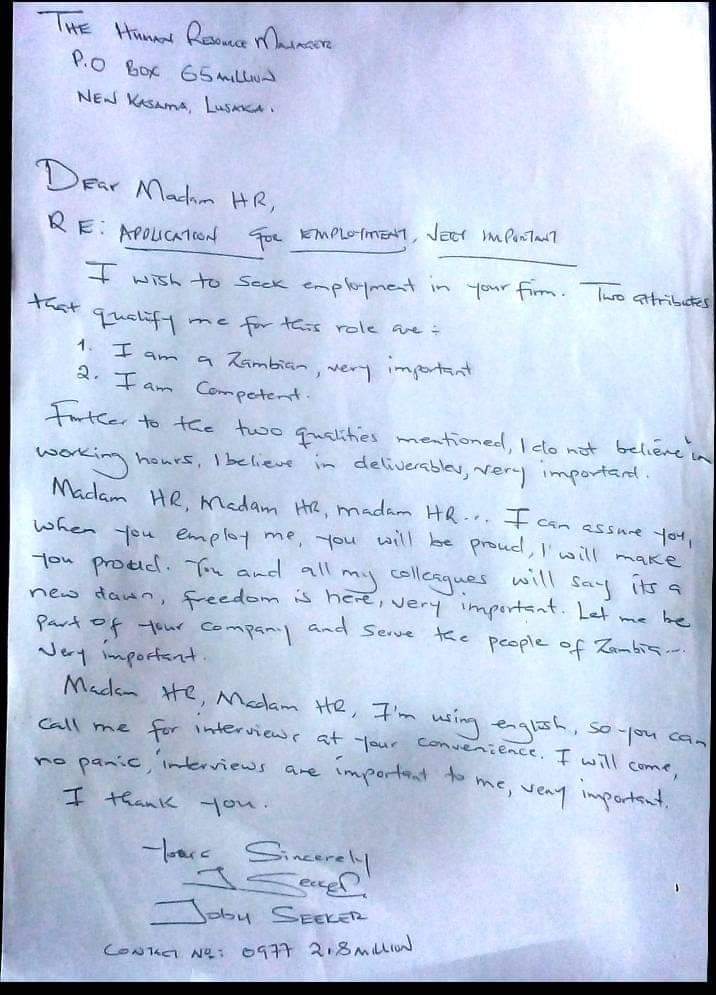 THE HUMAN RESOURCE MANAGER
P.O BOX 65 MILLION
NEW KASAMA, LUSAKA.
Dear Madam HR,
RE: APPLICATION FOR EMPLOYMENT, VERY IMPORTANT
I wish to seek employment in your firm. Two attributes
that qualify me for this role are:
1. I am a Zambian, very important
2. I am Competent.
Further to the two qualities mentioned, I do not believe in
working hours, I believe in deliverables, very important.
Madam HR, Madam HR, madam HR... I can assure you,
when you employ me, you will be proud, I will make
you proud. You and all my colleagues will say its a
new dawn, freedom is here, very important. Let me be
part of your company and serve the people of Zambia...
Very important.
Madam HR, Madam HR, I'm using english, so you can
call me for interviews at your convenience. I will come,
no panic, interviews are important to me, very important.
I thank you.
Yours Sincerely
J Seeker
JOBU SEEKER
CONTACT NO: 0977 2.8 MILLION